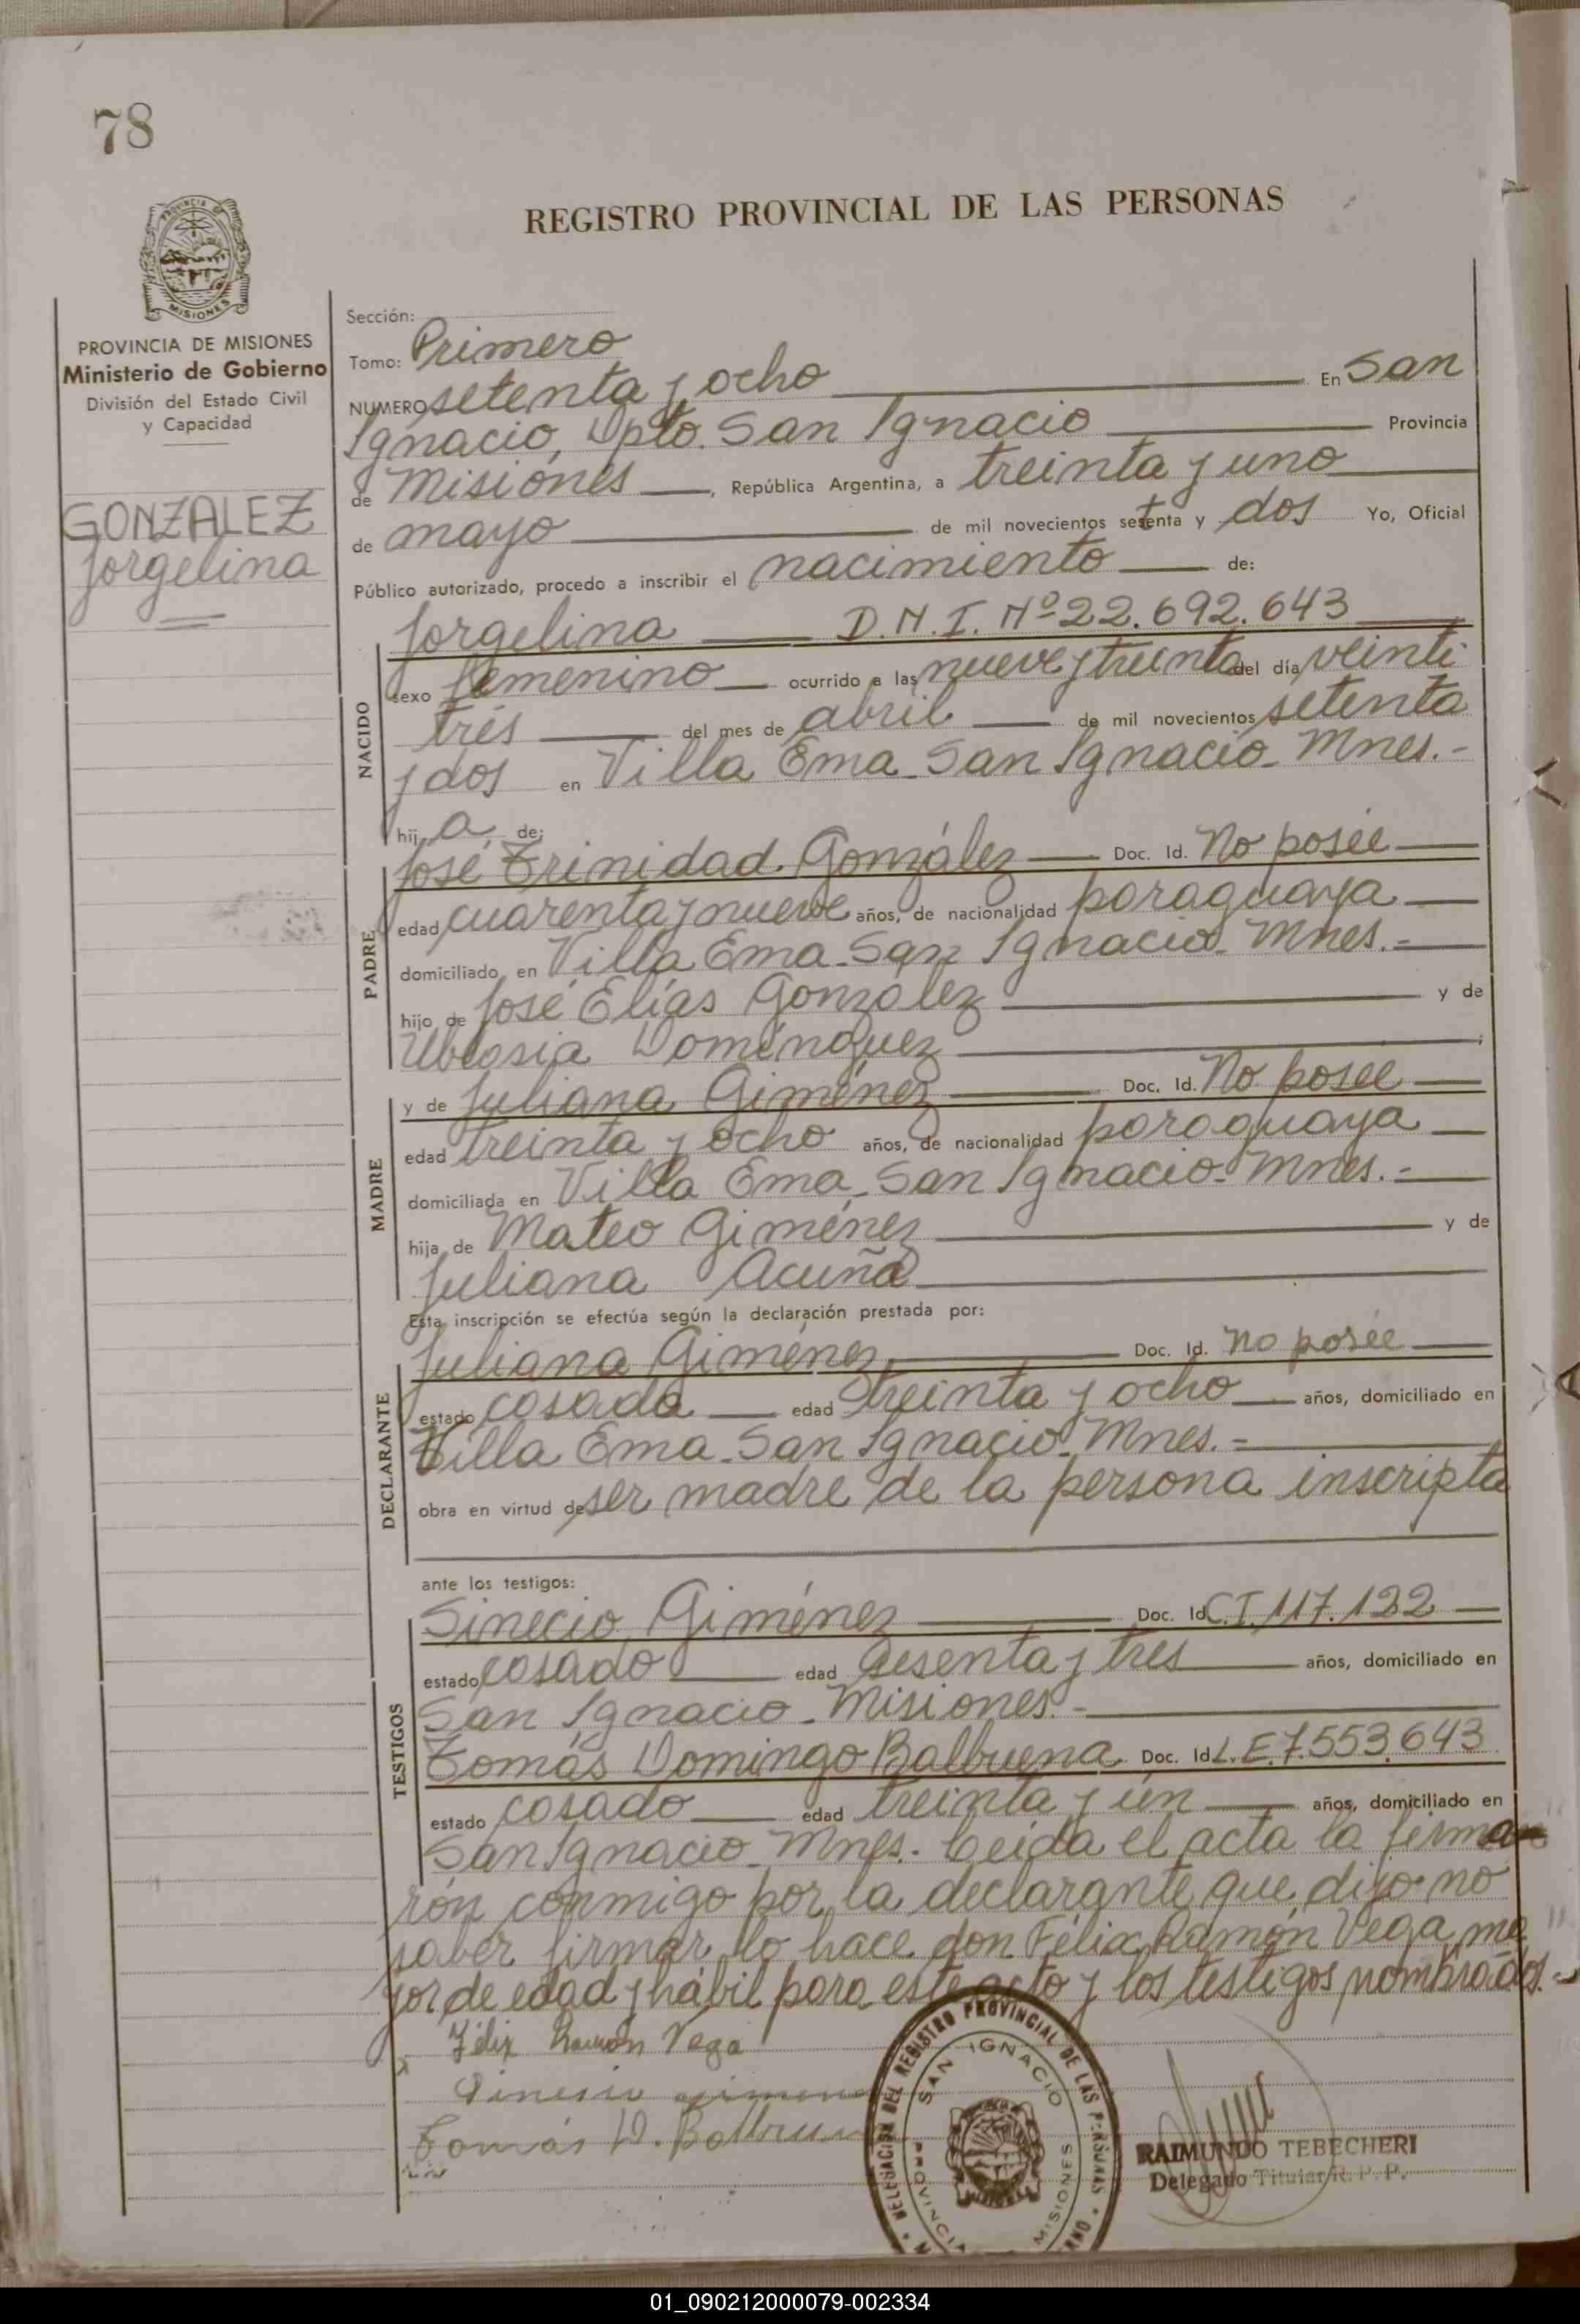 78
REGISTRO PROVINCIAL DE LAS PERSONAS
PROVINCIA DE
MISIONES
PROVINCIA DE MISIONES
Ministerio de Gobierno
División del Estado Civil
y Capacidad
GONZALEZ
Jorgelina
Sección:
Tomo: Primero
NUMERO setenta y ocho En San
Ignacio, Dpto. San Ignacio Provincia
de Misiones, República Argentina, a treinta y uno
de mayo de mil novecientos setenta y dos Yo, Oficial
Público autorizado, procedo a inscribir el nacimiento de:
NACIDO
Jorgelina D.N.I. Nº 22.692.643
sexo femenino ocurrido a las nueve y treinta del día veinti
trés del mes de abril de mil novecientos setenta
y dos en Villa Ema - San Ignacio - Mnes.-
hij a de:
PADRE
José Trinidad González Doc. Id. No posée
edad cuarenta y nueve años, de nacionalidad paraguaya
domiciliado en Villa Ema - San Ignacio - Mnes.-
hijo de José Elías González y de
Domínguez
MADRE
y de Juliana Giménez Doc. Id. No posee
edad treinta y ocho años, de nacionalidad paraguaya
domiciliada en Villa Ema - San Ignacio - Mnes.-
hija de Mateo Giménez y de
Juliana Acuña
Esta inscripción se efectúa según la declaración prestada por:
DECLARANTE
Juliana Giménez Doc. Id. no posée
estado casada edad treinta y ocho años, domiciliado en
Villa Ema - San Ignacio - Mnes.-
obra en virtud de ser madre de la persona inscripta
ante los testigos:
TESTIGOS
Sinecio Giménez Doc. Id. C.I. 117.122
estado casado edad sesenta y tres años, domiciliado en
San Ignacio - Misiones.-
Tomás Domingo Balbuena Doc. Id. L.E. 7.553.643
estado casado edad treinta y ún años, domiciliado en
San Ignacio - Mnes. Leída el acta la firma
rón conmigo por la declarante que dijo no
saber firmar lo hace don Félix Ramón Vega, ma
yor de edad y hábil para este acto y los testigos nombrados.-
Félix Ramón Vega
Tomás D.
DELEGACION DEL REGISTRO PROVINCIAL DE LAS PERSONAS
SAN IGNACIO
PROVINCIA
MISIONES
RAIMUNDO TEBECHERI
Delegado Titular R. P. P.
01_090212000079-002334